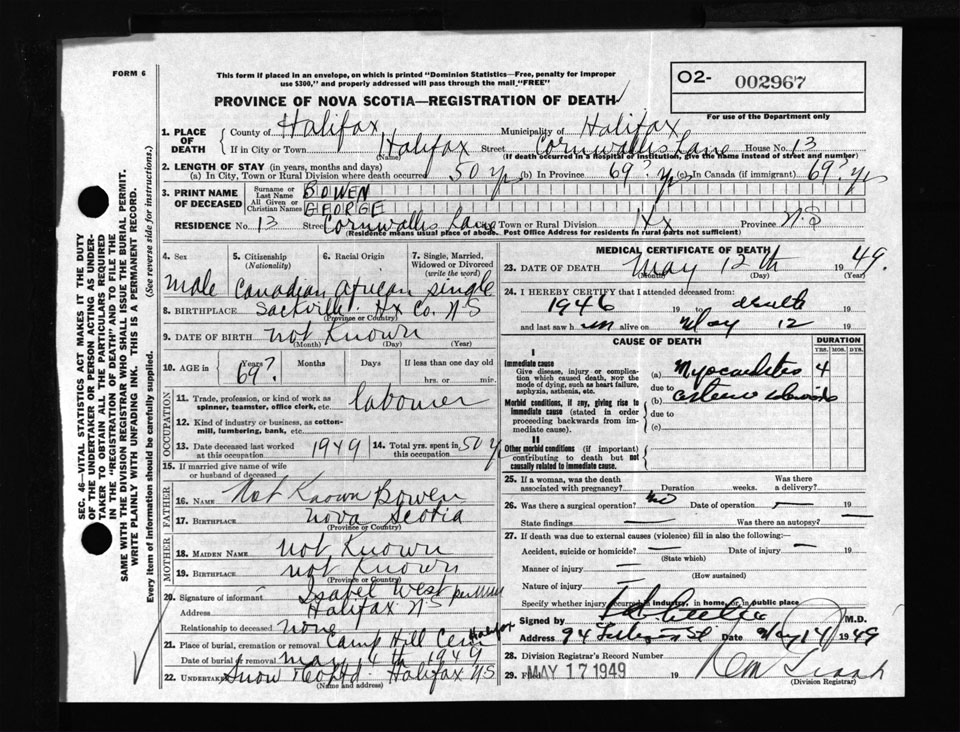 FORM 6
This form if placed in an envelope, on which is printed "Dominion Statistics—Free, penalty for improper
use $300," and properly addressed will pass through the mail "FREE"
O2- 002967
For use of the Department only
PROVINCE OF NOVA SCOTIA—REGISTRATION OF DEATH
1. PLACE OF DEATH
County of Halifax Municipality of Halifax
If in City or Town Halifax Street Cornwallis Lane House No. 13
(Name) (If death occurred in a hospital or institution, give the name instead of street and number)
2. LENGTH OF STAY (in years, months and days)
(a) In City, Town or Rural Division where death occurred 50 yrs (b) In Province 69? yrs (c) In Canada (if immigrant) 69? yrs
3. PRINT NAME OF DECEASED
Surname or Last Name BOWEN
All Given or Christian Names GEORGE
RESIDENCE No. 13 Street Cornwallis Lane City Town or Rural Division Hx Province N.S
(Residence means usual place of abode. Post Office Address for residents in rural parts not sufficient)
4. Sex 5. Citizenship (Nationality) 6. Racial Origin 7. Single, Married, Widowed or Divorced (write the word)
male Canadian african single
8. BIRTHPLACE Sackville Hx Co. NS
(Province or Country)
9. DATE OF BIRTH not Known
(Month) (Day) (Year)
10. AGE in Years? Months Days If less than one day old
69? hrs. or min.
OCCUPATION
11. Trade, profession, or kind of work as spinner, teamster, office clerk, etc. labourer
12. Kind of industry or business, as cotton-mill, lumbering, bank, etc.
13. Date deceased last worked at this occupation 1949 14. Total yrs. spent in this occupation 50 yr
15. If married give name of wife or husband of deceased
FATHER
16. NAME Not Known Bowen
17. BIRTHPLACE Nova Scotia
(Province or Country)
MOTHER
18. MAIDEN NAME not Known
19. BIRTHPLACE not Known
(Province or Country)
20. Signature of informant Isabel West
Address Halifax NS
Relationship to deceased none
21. Place of burial, cremation or removal Camp Hill Cem Halifax
Date of burial or removal May 1949
22. Undertaker Snow Halifax NS
(Name and address)
MEDICAL CERTIFICATE OF DEATH
23. DATE OF DEATH May 12th 1949.
(Month) (Day)
24. I HEREBY CERTIFY that I attended deceased from:
1946 to death 19
and last saw him alive on May 12 19
CAUSE OF DEATH DURATION
YRS. MOS. DYS.
I
Immediate cause
Give disease, injury or complication which caused death, NOT the mode of dying, such as heart failure, asphyxia, asthenia, etc.
(a) Myocarditis 4
due to
Morbid conditions, if any, giving rise to immediate cause (stated in order proceeding backwards from immediate cause).
(b)
due to
(c)
II
Other morbid conditions (if important) contributing to death but not causally related to immediate cause.
25. If a woman, was the death associated with pregnancy? Duration weeks. Was there a delivery?
26. Was there a surgical operation? no Date of operation — 19
State findings — Was there an autopsy? —
27. If death was due to external causes (violence) fill in also the following:—
Accident, suicide or homicide? — Date of injury — 19
(State which)
Manner of injury —
(How sustained)
Nature of injury —
Specify whether injury occurred in industry, in home, or in public place
Signed by M.D.
Address 94 Date May 14 1949
28. Division Registrar's Record Number
29. Filed MAY 17 1949 19
(Division Registrar)
SEC. 46—VITAL STATISTICS ACT MAKES IT THE DUTY
OF THE UNDERTAKER OR PERSON ACTING AS UNDER-
TAKER TO OBTAIN ALL THE PARTICULARS REQUIRED
IN THE "REGISTRATION OF DEATH" AND TO FILE THE
SAME WITH THE DIVISION REGISTRAR WHO SHALL ISSUE THE BURIAL PERMIT.
WRITE PLAINLY WITH UNFADING INK. THIS IS A PERMANENT RECORD.
Every item of information should be carefully supplied. (See reverse side for instructions.)